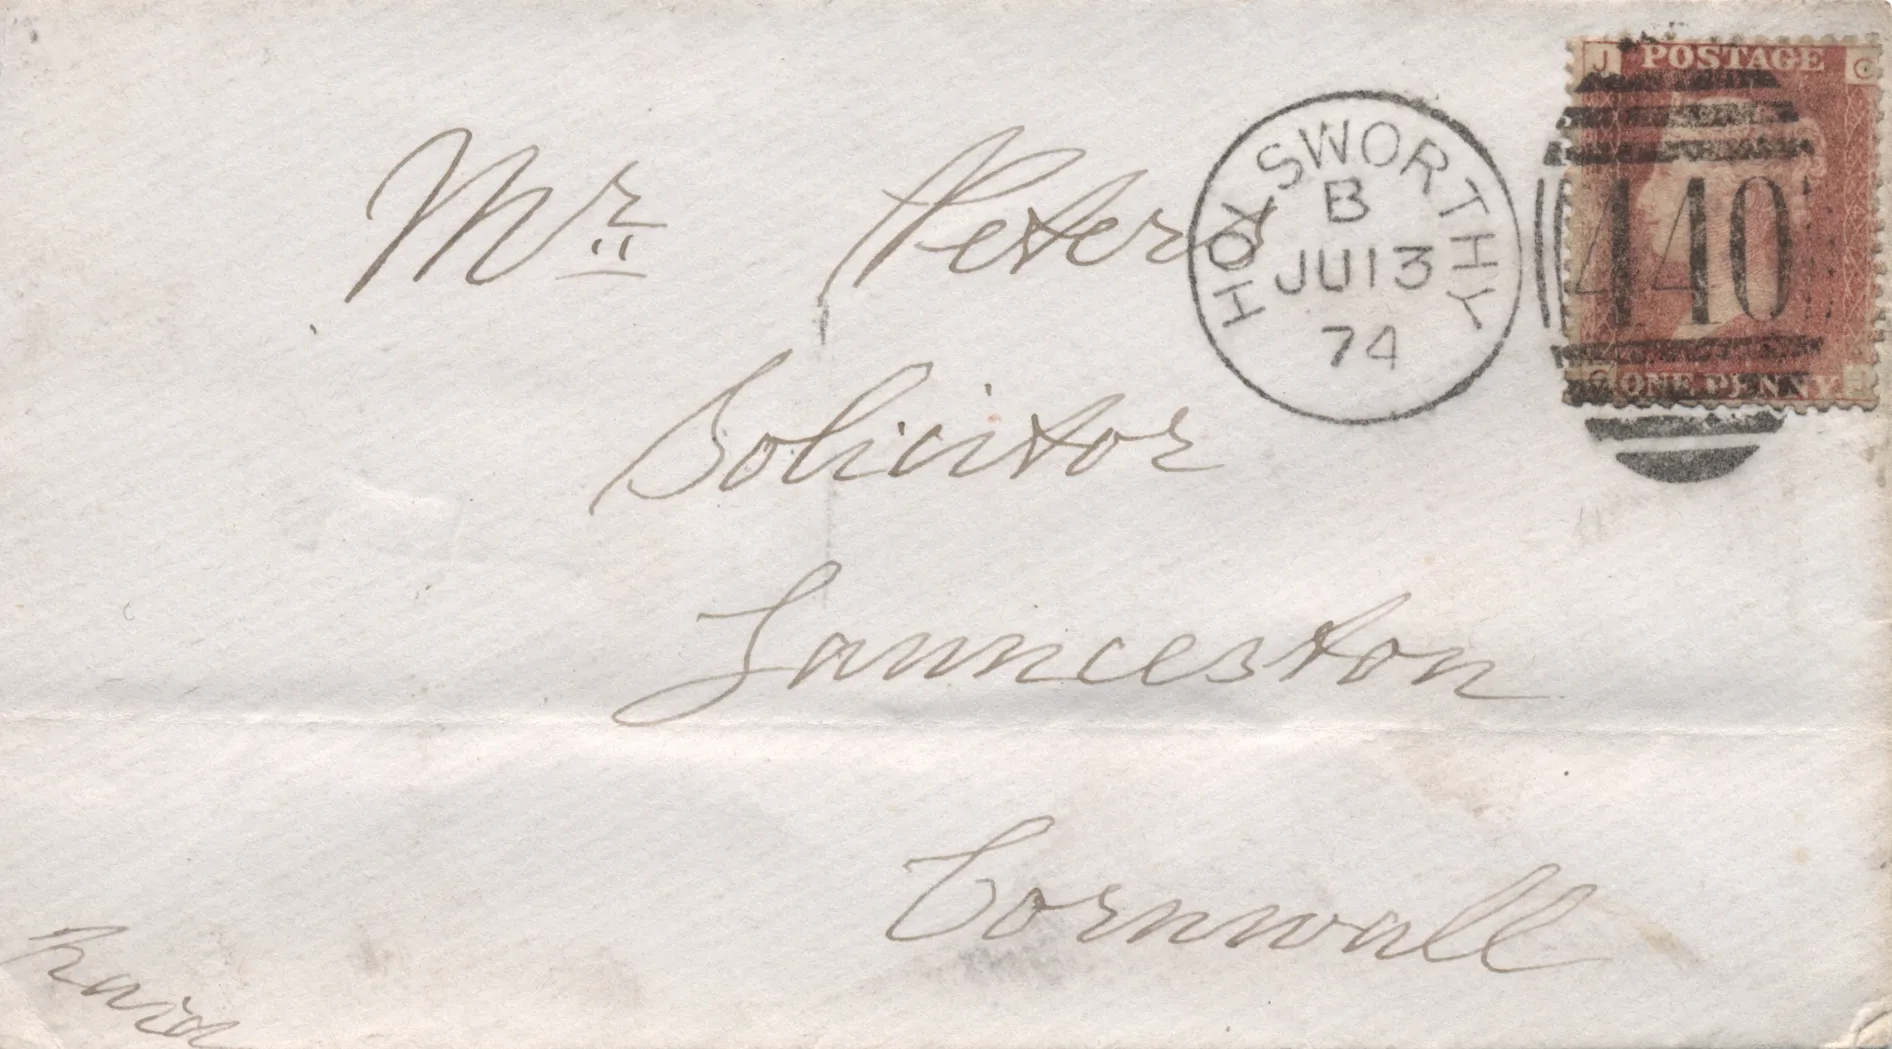 Mr Peters
Solicitor
Launceston
Cornwall
HOLSWORTHY
B
JU 13
74
J POSTAGE G
440
G ONE PENNY J